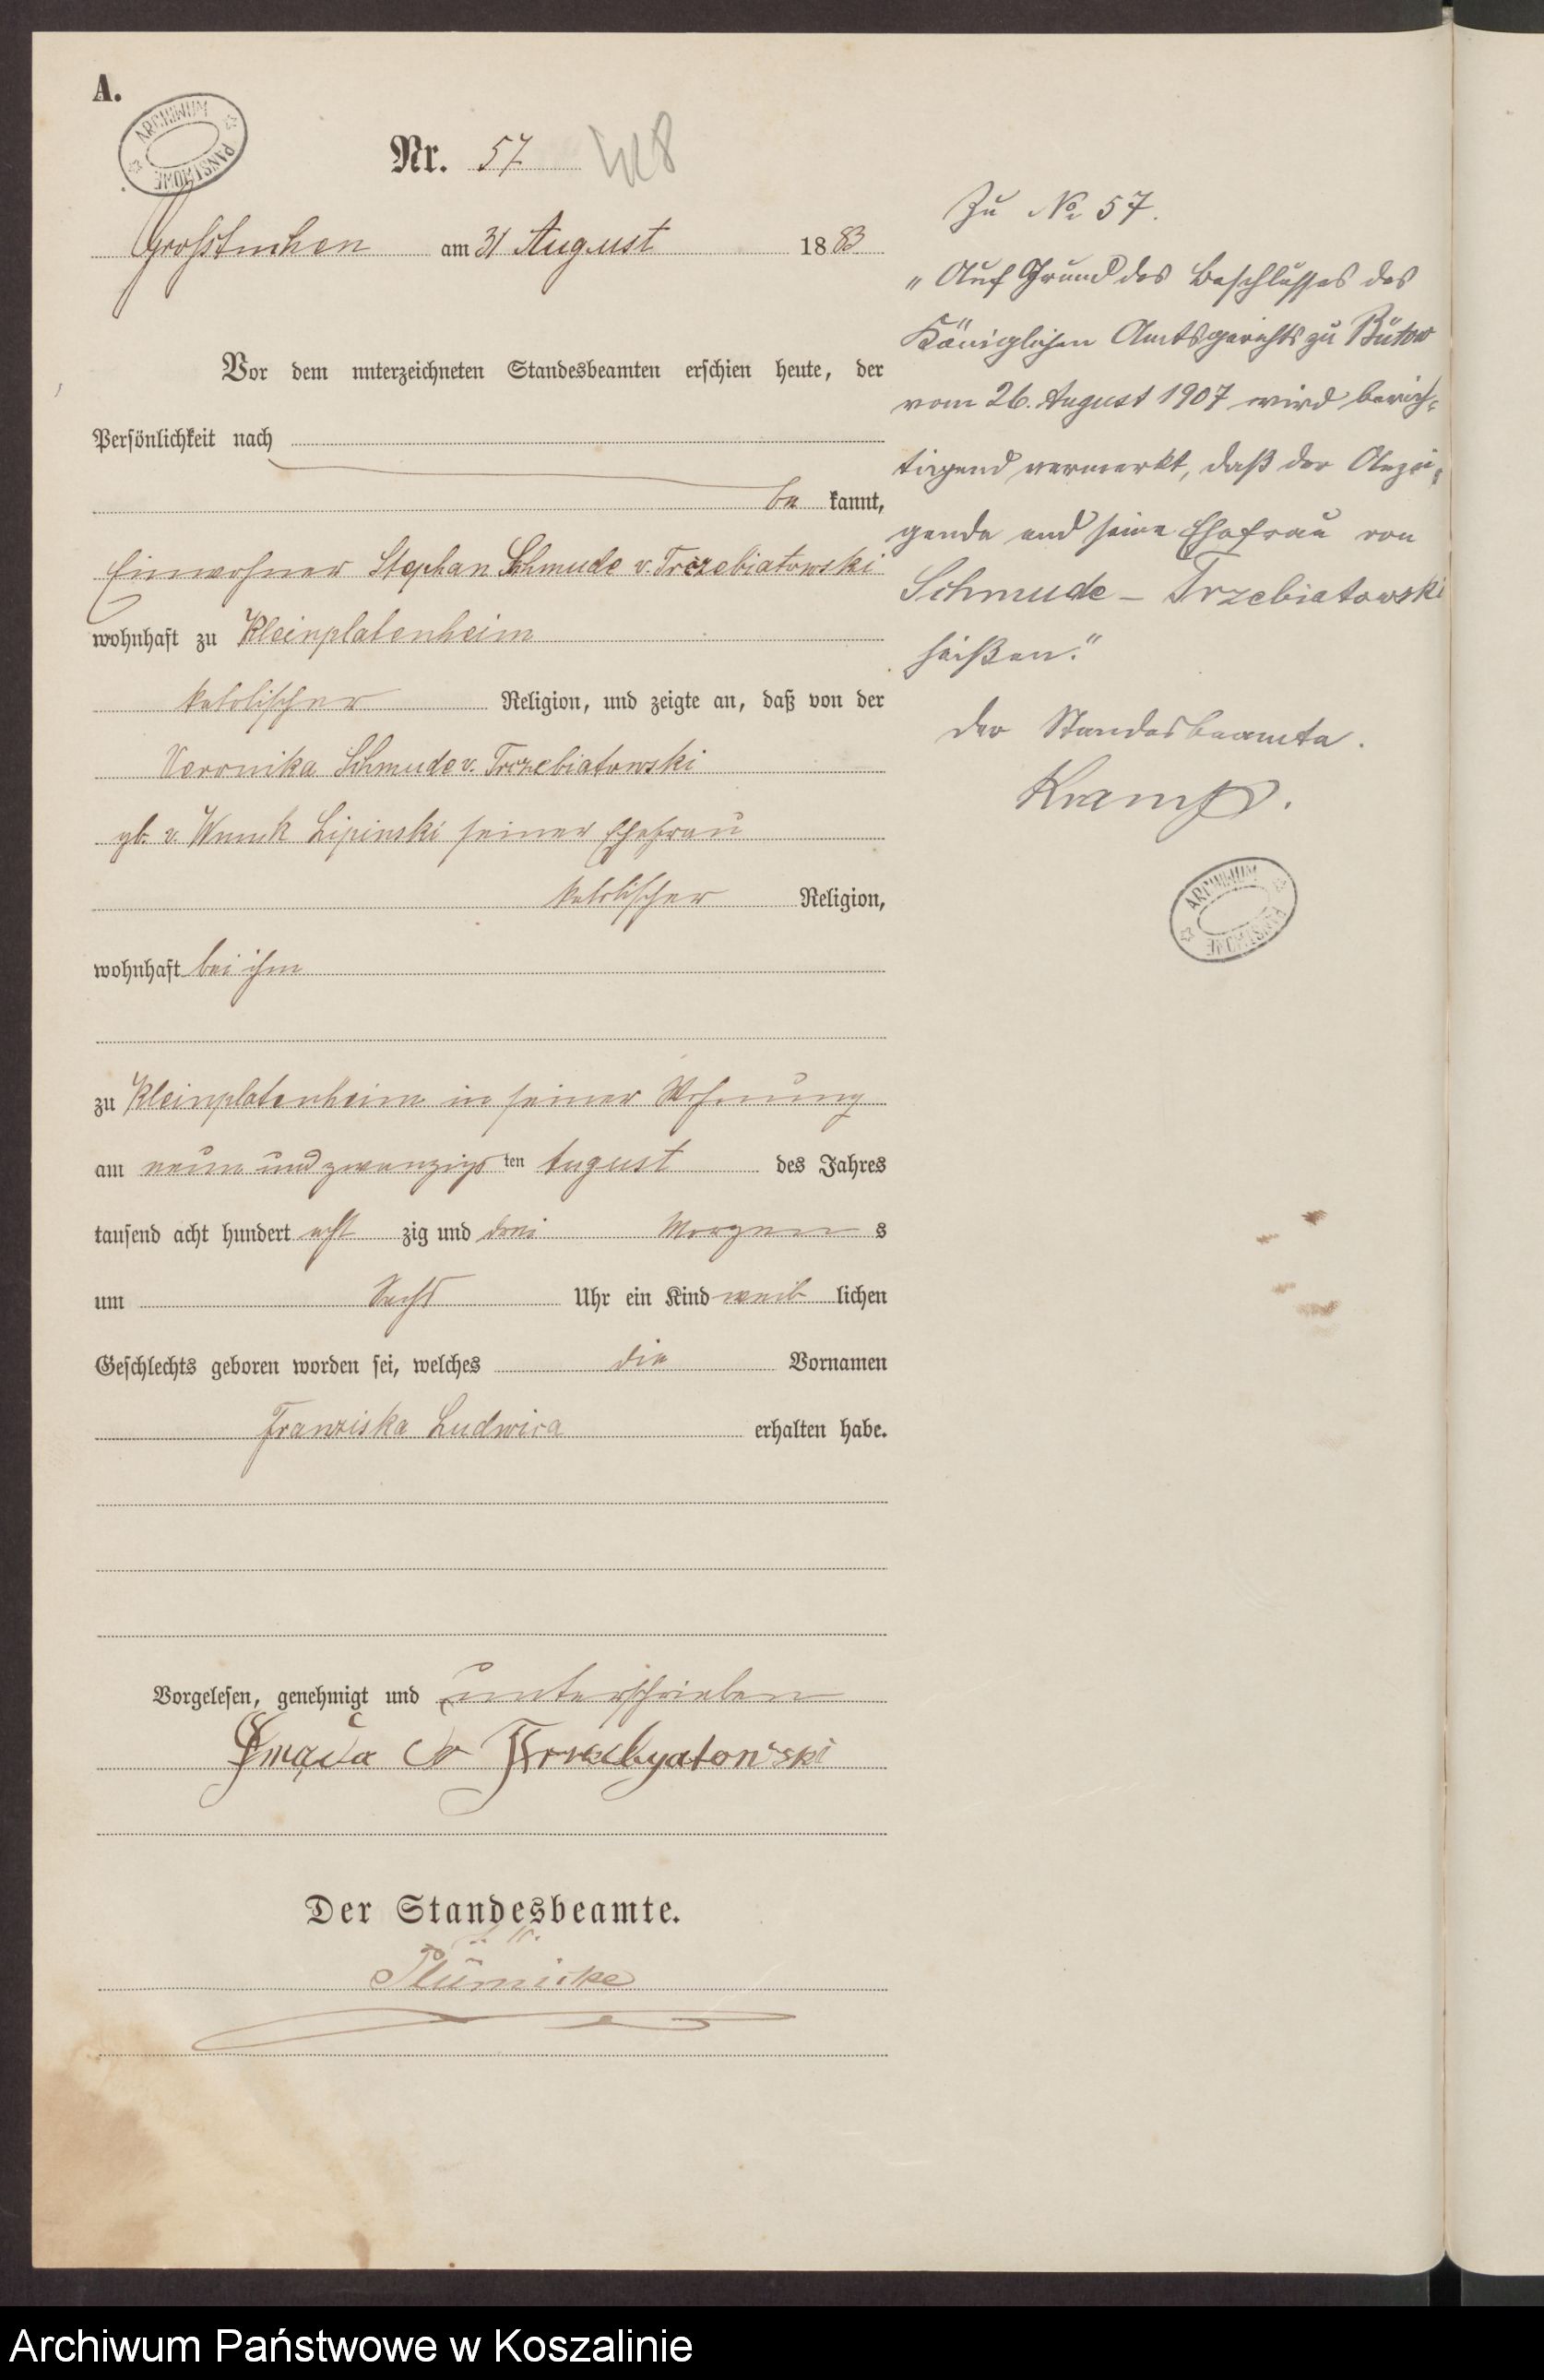 A.
ARCHIWUM PAŃSTWOWE
Nr. 57
Großtuchen am 31 August 1883
Vor dem unterzeichneten Standesbeamten erschien heute, der
Persönlichkeit nach
be kannt,
Einwohner Stephan Schmude v. Trzebiatowski
wohnhaft zu Kleinplatenheim
katolischer Religion, und zeigte an, daß von der
Veronika Schmude v. Trzebiatowski
gb. v. Wnuck Lipinski seiner Ehefrau
katolischer Religion,
wohnhaft bei ihm
zu Kleinplatenheim in seiner Wohnung
am neun und zwanzigs ten August des Jahres
tausend acht hundert acht zig und drei Morgen s
um Sechs Uhr ein Kind weib lichen
Geschlechts geboren worden sei, welches die Vornamen
Franziska Ludwica erhalten habe.
Vorgelesen, genehmigt und unterschrieben
Der Standesbeamte.
Plümicke
Zu No 57.
„Auf Grund des Beschlusses des
Königlichen Amtsgerichts zu Bütow
vom 26. August 1907 wird berich-
tigend vermerkt, daß der Anzei-
gende und seine Ehefrau von
Schmude - Trzebiatowski
heißen."
Der Standesbeamte.
Kramp.
ARCHIWUM PAŃSTWOWE
Archiwum Państwowe w Koszalinie